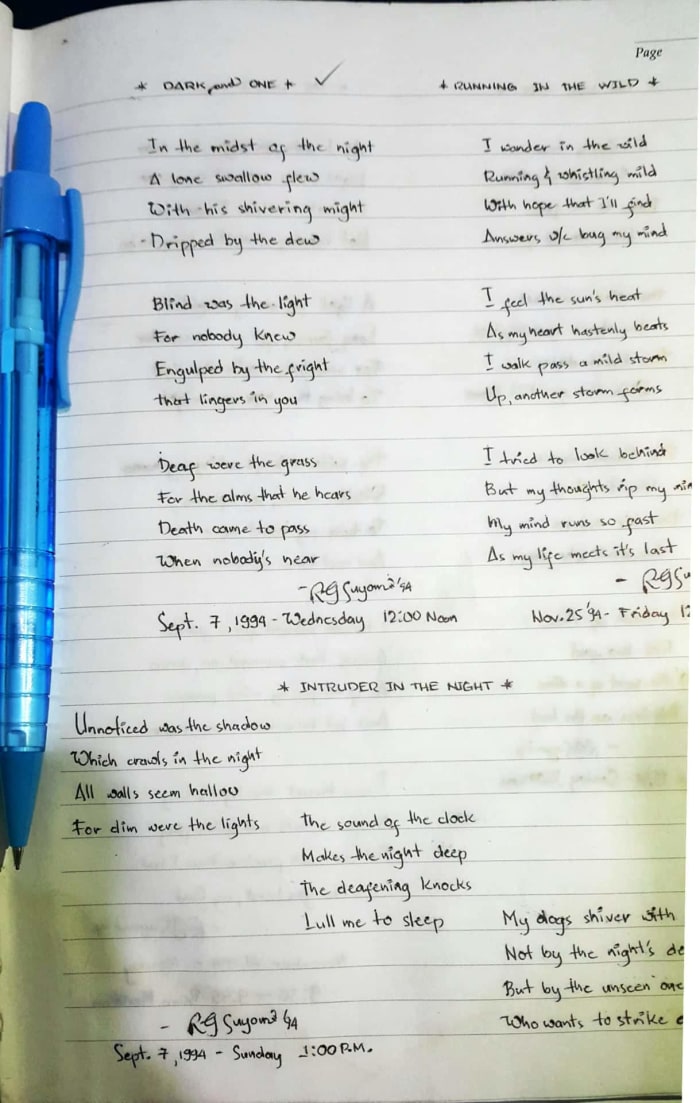 Page
* DARK and ONE *
In the midst of the night
A lone swallow flew
With his shivering might
Dripped by the dew
Blind was the light
For nobody knew
Engulped by the fright
that lingers in you
Deaf were the grass
For the alms that he hears
Death came to pass
When nobody's near
Sept. 7, 1994 - Wednesday 12:00 Noon
* RUNNING IN THE WILD *
I wander in the wild
Running & whistling mild
With hope that I'll find
Answers, w/c bug my mind
I feel the sun's heat
As my heart hastenly beats
I walk pass a mild storm
Up, another storm forms
I tried to look behind
But my thoughts rip my
My mind runs so fast
As my life meets it's last
Nov. 25 '94 - Friday
* INTRUDER IN THE NIGHT *
Unnoticed was the shadow
Which crawls in the night
All walls seem hallow
For dim were the lights
The sound of the clock
Makes the night deep
The deafening knocks
Lull me to sleep
My dogs shiver with
Not by the night's
But by the unseen one
Who wants to strike
Sept. 7, 1994 - Sunday 1:00 P.M.